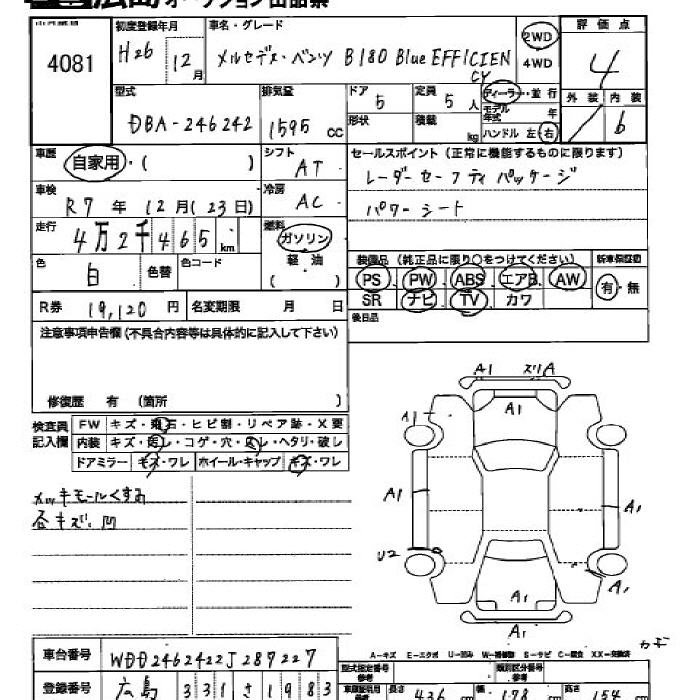 広島オークション出品票
4081
初度登録年月 H26 12月
車名・グレード メルセデス・ベンツ B180 Blue EFFICIENCY
2WD
4WD
評価点 4
型式 DBA-246242
排気量 1595 CC
ドア 5
形状
定員 5人
積載 kg
ディーラー・並行
モデル年式 年
ハンドル 左・右
外装 内装 b
車歴 自家用・( )
シフト AT
セールスポイント(正常に機能するものに限ります)
レーダーセーフティパッケージ
パワーシート
車検 R7年12月(23日)
冷房 AC
走行 4万2千465km
燃料 ガソリン
軽油
( )
色 白 色替 色コード
装備品(純正品に限り○をつけてください) 新車保証書
PS PW ABS エアB AW 有・無
SR ナビ TV カワ
R券 19,120円 名変期限 月 日
後日品
注意事項申告欄(不具合内容等は具体的に記入して下さい)
修復歴 有 (箇所 )
検査員記入欄
FW キズ・飛石・ヒビ割・リペア跡・X要
内装 キズ・汚レ・コゲ・穴・スレ・ヘタリ・破レ
ドアミラー キズ・ワレ ホイール・キャップ キズ・ワレ
メッキモールくすみ
各キズ、凹
A1 スリA
A1
A1
A1 A1
U2
A1 A1
A1
A-キズ E-エクボ U-凹み
車台番号 WDD2462422J287227
登録番号 広島 331 さ 1983
型式指定番号 類別区分番号
長さ 436 cm 幅 178 cm 高さ 154 cm